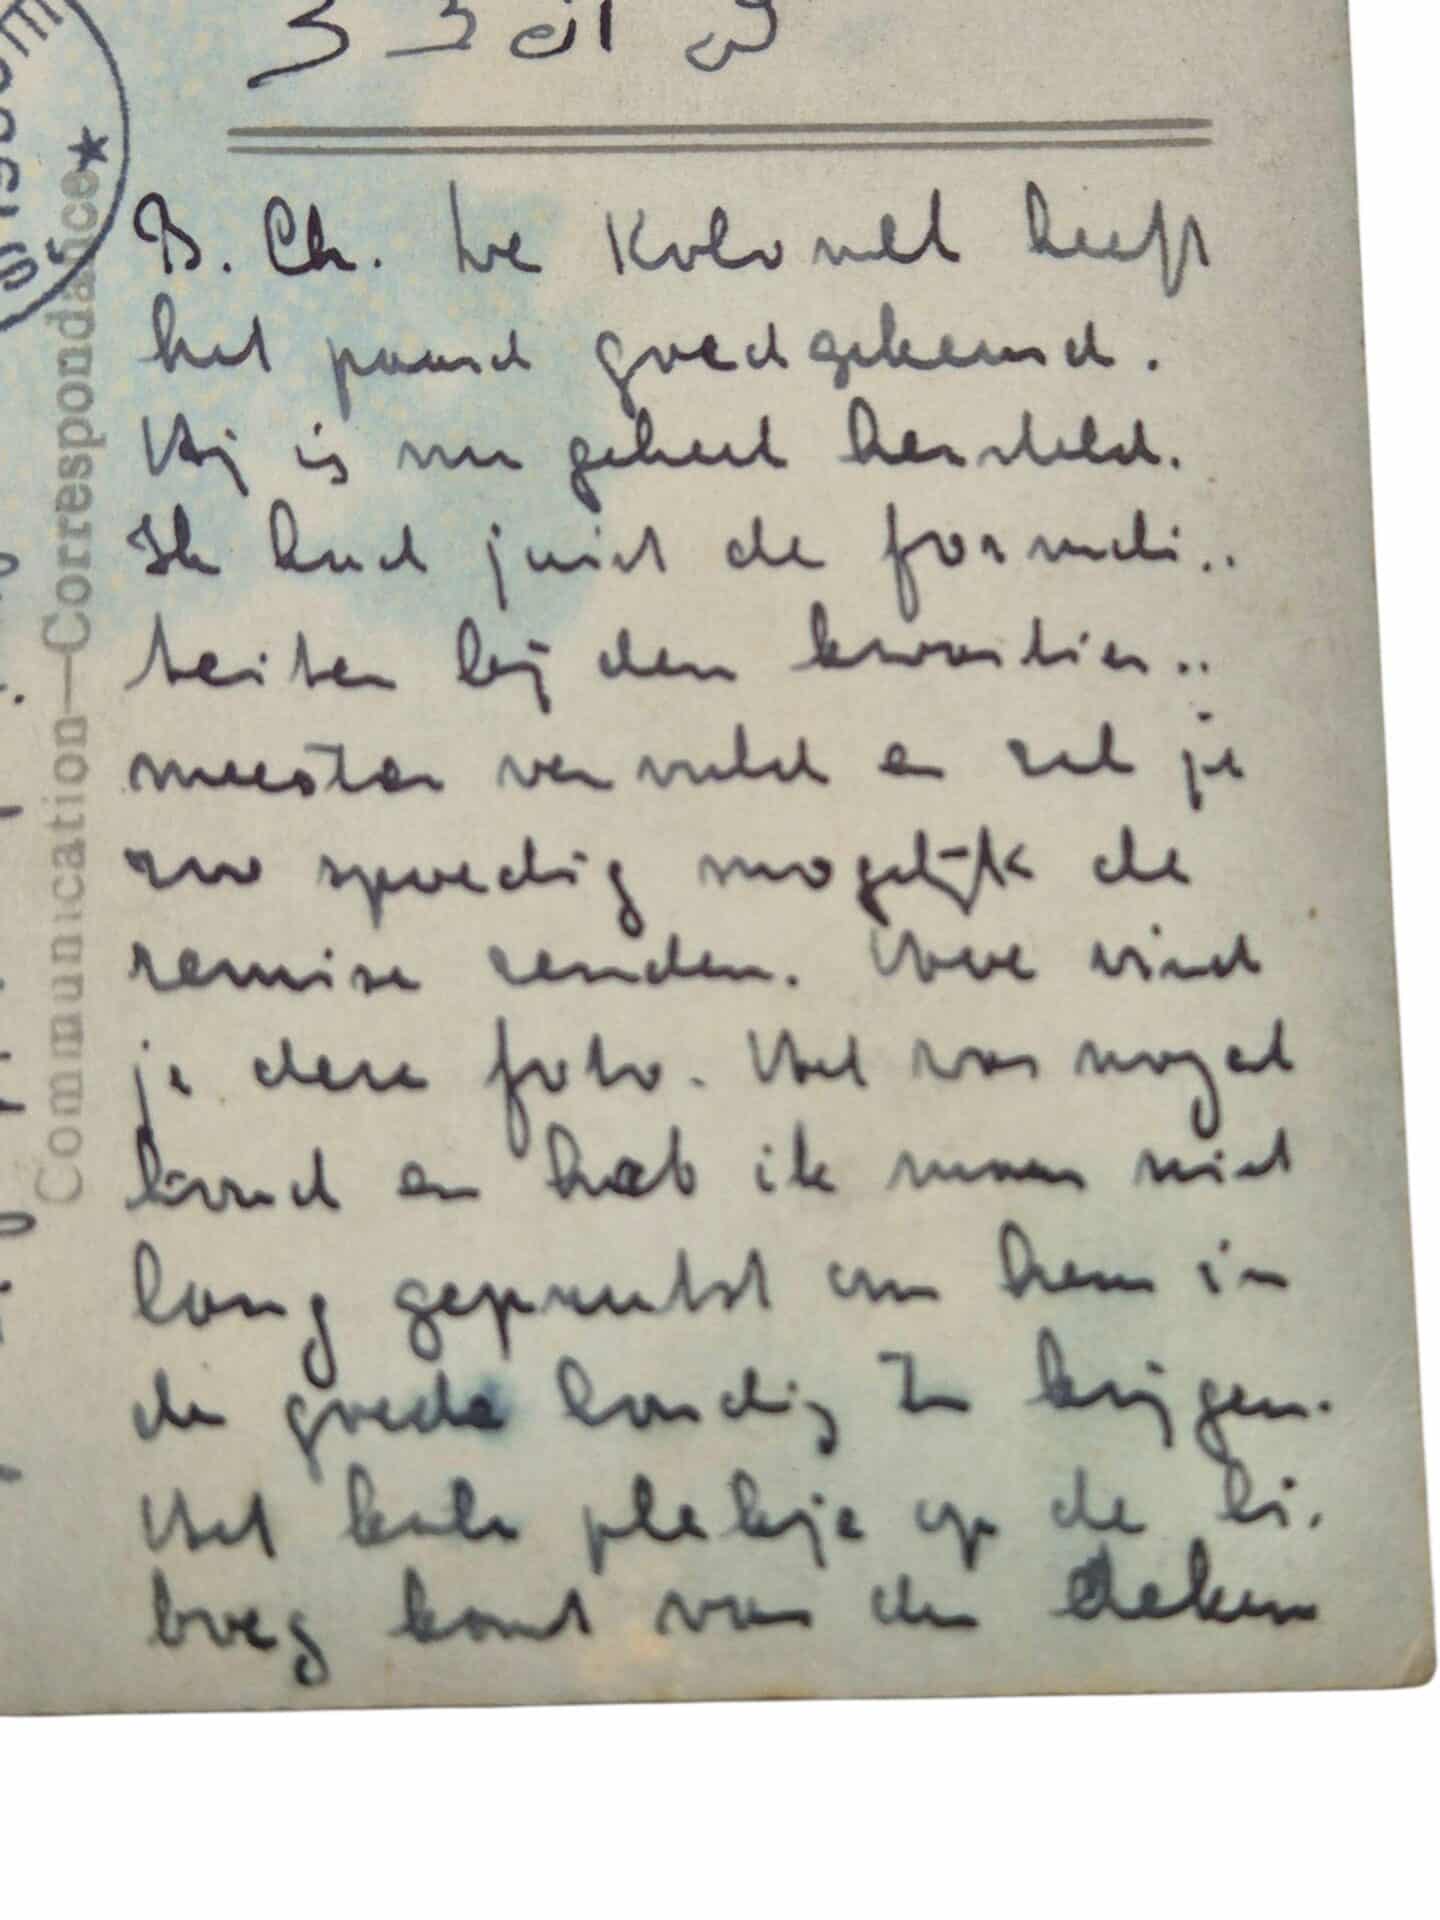 B. Ch. De Kolonel heeft
het paard goedgekeurd.
Hij is nu geheel hersteld.
Ik had juist de formali..
teiten bij den kwartier..
meester vervuld en zal je
zoo spoedig mogelijk de
remise zenden. Hoe vind
je deze foto. Het was nogal
koud en heb ik maar niet
lang geprutst om hem in
de goede houding te krijgen.
Het kale plekje op de li.
boeg komt van de deken
Communication—Correspondance